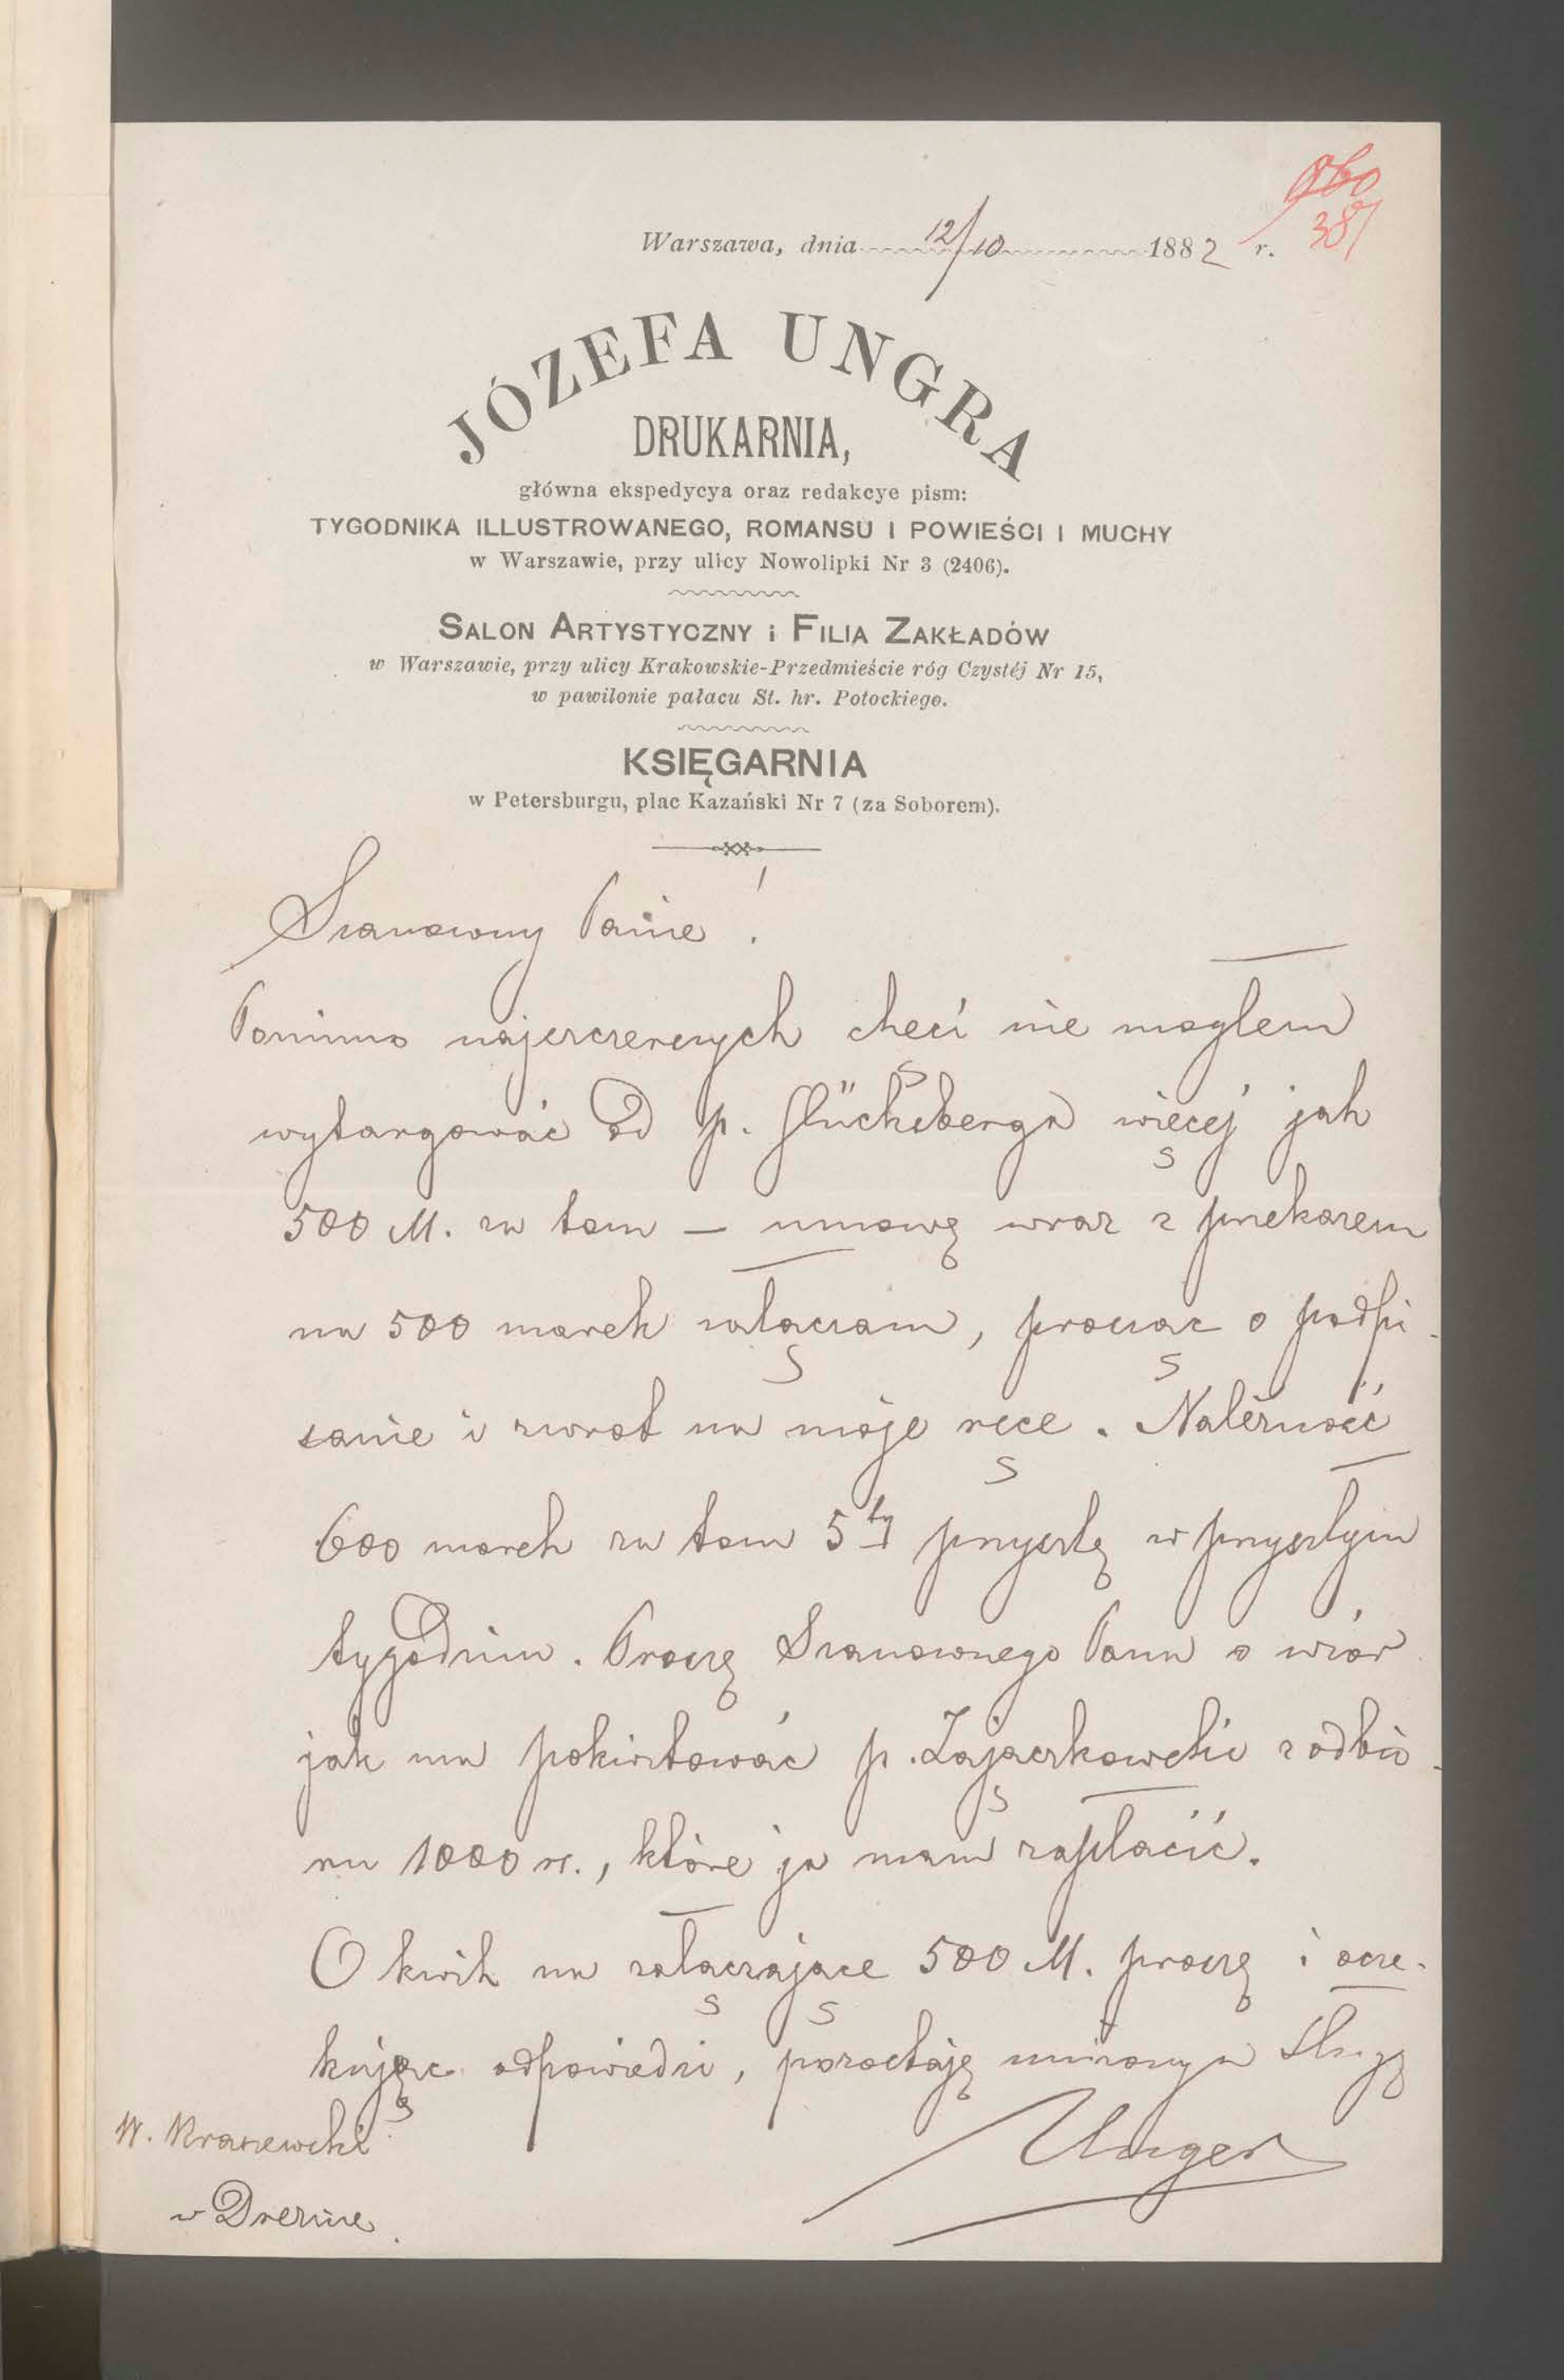 360
387
Warszawa, dnia 12/10 1882 r.
JÓZEFA UNGRA
DRUKARNIA,
główna ekspedycya oraz redakcye pism:
TYGODNIKA ILLUSTROWANEGO, ROMANSU I POWIEŚCI I MUCHY
w Warszawie, przy ulicy Nowolipki Nr 3 (2406).
SALON ARTYSTYCZNY i FILIA ZAKŁADÓW
w Warszawie, przy ulicy Krakowskie-Przedmieście róg Czystéj Nr 15,
w pawilonie pałacu St. hr. Potockiego.
KSIĘGARNIA
w Petersburgu, plac Kazański Nr 7 (za Soborem).
Szanowny Panie!
Pomimo najszczerszych chęci nie mogłem
wytargować od p. Glücksberga więcej jak
500 M. za tom — umowę wraz z przekazem
na 500 marek załączam, prosząc o podpi-
sanie i zwrot na moje ręce. Należność
600 marek za tom 5ty przyszlę w przyszłym
tygodniu. Proszę Szanownego Pana o wzór
jak ma pokwitować p. Zajączkowski z odbio-
ru 1000 rs., które ja mam zapłacić.
O kwit na załączające 500 M. proszę i ocze-
kując odpowiedzi, pozostaję uniżonym sługą
Unger
W. Kraszewski
w Dreznie.